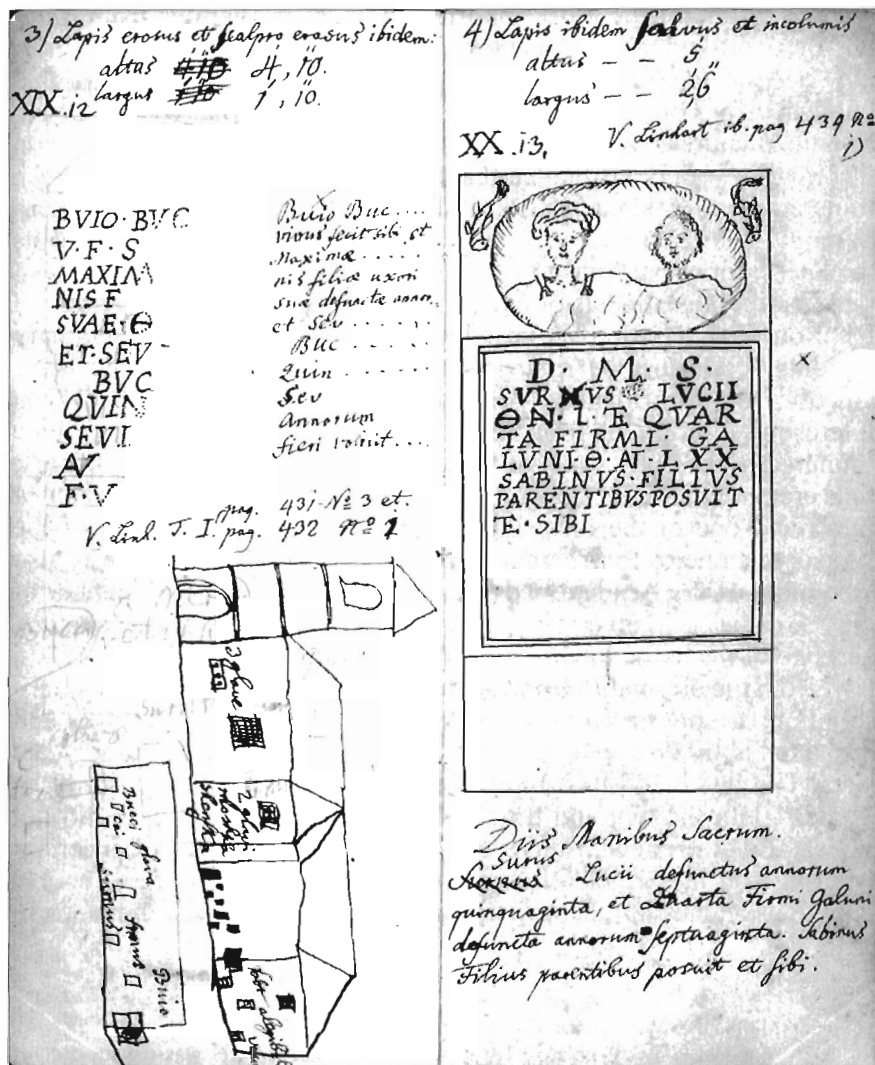 3) Lapis erosus et scalpro erasus ibidem:
altus 4', 10''.
largus 1', 10''.
XIX.12
BVIO·BVC
V·F·S
MAXIM
NIS F
SVAE·Θ
ET·SEV
BVC
QVIN
SEVI
AN
F·V
Buio Buc....
vivus fecit sibi et
Maximæ .....
nis filiæ uxori
suæ defunctæ annor..
et Sev ......
Buc ......
Quin ......
Sev
Annorum
fieri voluit....
pag. 431 Nº 3 et.
V. Linh. T. I. pag. 432 Nº 1
3 glave
2 glavi
moshka
slenska
Bucci
glava
Buio
4) Lapis ibidem salvus et incolumis
altus – – 5'
largus – – 2'6''
XX.13,
V. Linhart ib. pag 434 Nº
1)
D· M· S·
SVRVS LVCII
Θ N· L· E QVAR
TA FIRMI· GA
LVNI·Θ·AN·LXX
SABINVS·FILIVS
PARENTIBVS POSVIT
E·SIBI
Diis Manibus Sacrum.
Surus
Lucii defunctus annorum
quinquaginta, et Quarta Firmi Galuni
defuncta annorum septuaginta. Sabinus
Filius parentibus posuit et sibi.